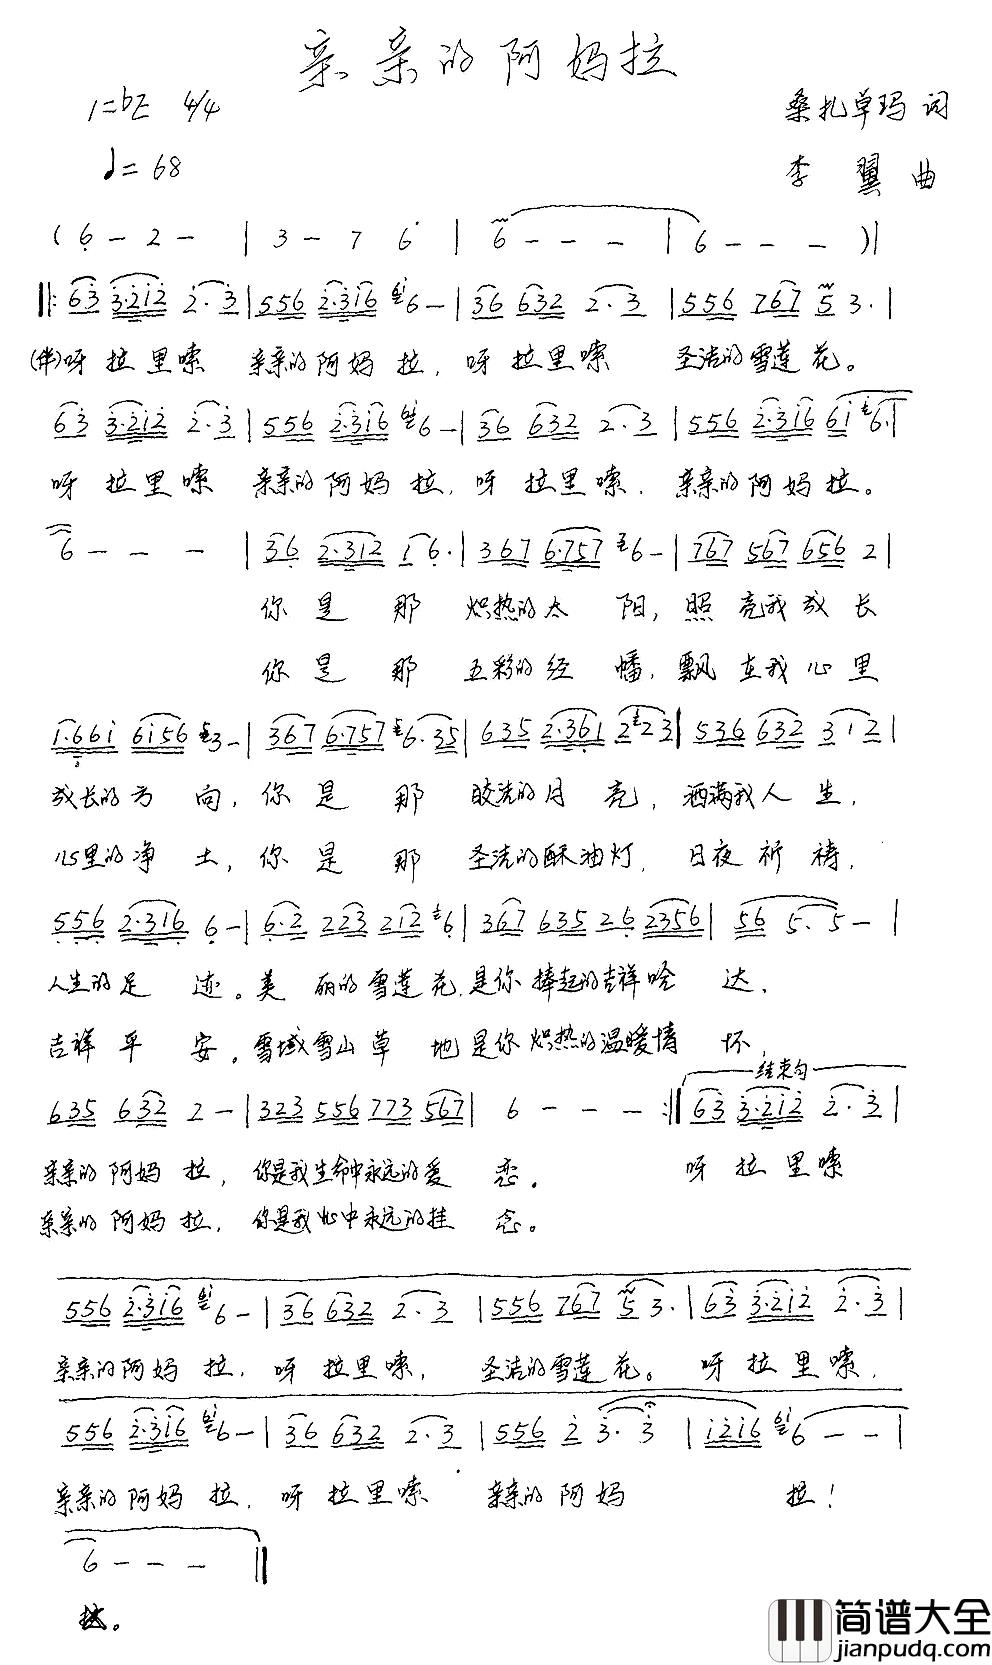 亲亲的阿妈拉
1=bE 4/4
桑扎卓玛 词
♩=68
李 翼 曲
( 6 - 2 - | 3 - 7 6 | 6 - - - | 6 - - - )|
‖: 63 3·212 2·3 | 556 2·316 6 - | 36 632 2·3 | 556 767 5 3· |
(伴)呀拉里嗦 亲亲的阿妈拉，呀拉里嗦 圣洁的雪莲花。
63 3·212 2·3 | 556 2·316 6 - | 36 632 2·3 | 556 2·316 61 6· |
呀拉里嗦 亲亲的阿妈拉，呀拉里嗦，亲亲的阿妈拉。
6 - - - | 36 2·312 1 6· | 367 6·757 6 - | 767 567 656 2 |
你是那 炽热的太阳，照亮我成长
你是那 五彩的经幡，飘在我心里
1·661 6156 3 - | 367 6·757 6·35 | 635 2·361 2 23 | 536 632 312 |
成长的方向，你是那 皎洁的月亮，洒满我人生，
心里的净土，你是那 圣洁的酥油灯，日夜祈祷，
556 2·316 6 - | 6·2 223 212 6 | 367 635 26 2356 | 56 5· 5 - |
人生的足迹。美丽的雪莲花，是你捧起的吉祥哈达，
吉祥平安。雪域雪山草地是你炽热的温暖情怀，
结束句
635 632 2 - | 323 556 773 567 | 6 - - - :‖ 63 3·212 2·3 |
亲亲的阿妈拉，你是我生命中永远的爱恋。 呀拉里嗦
亲亲的阿妈拉，你是我心中永远的挂念。
556 2·316 6 - | 36 632 2·3 | 556 767 5 3· | 63 3·212 2·3 |
亲亲的阿妈拉，呀拉里嗦，圣洁的雪莲花。呀拉里嗦，
556 2·316 6 - | 36 632 2·3 | 556 2 3· 3 | 1216 6 - - |
亲亲的阿妈拉，呀拉里嗦 亲亲的阿妈 拉！
6 - - - ‖
拉。
简谱大全
jianpudq.com